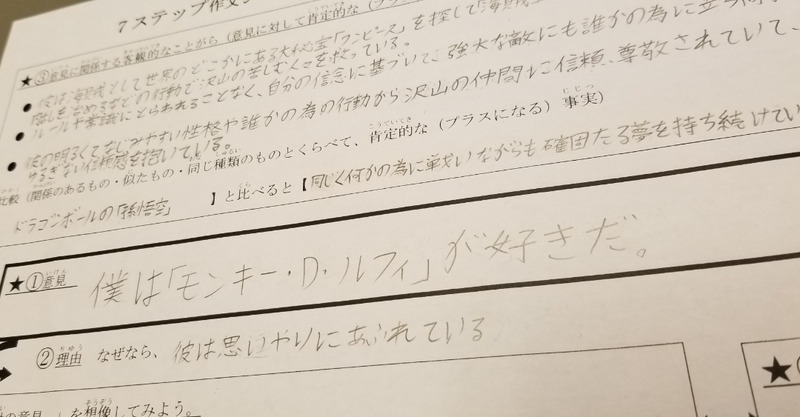 7ステップ作文
★③意見に関係する客観的なことがら（意見に対して肯定的な（プラ
● 彼は海賊として世界のどこかにある大秘宝「ワンピース」を探して「海賊
するなどの行動で沢山の苦しむ人々を救っている。
● ルールや常識にとらわれることなく、自分の信念に基づいて、強大な敵にも誰かの為に立ち向
● 彼の明るくてなじみやすい性格や誰かの為の行動から沢山の仲間に信頼、尊敬されていて、
ゆるぎない信頼感を抱いている。
比較（関係のあるもの・似たもの・同じ種類のものとくらべて、肯定的な（プラスになる）事実）
ドラゴンボールの「孫悟空」 】と比べると【同じく何かの為に戦いながらも確固たる夢を持ち続けてい
★①意見 僕は「モンキー・D・ルフィ」が好きだ。
②理由 なぜなら、彼は思いやりにあふれている
の意見 」を想像してみよう。
★